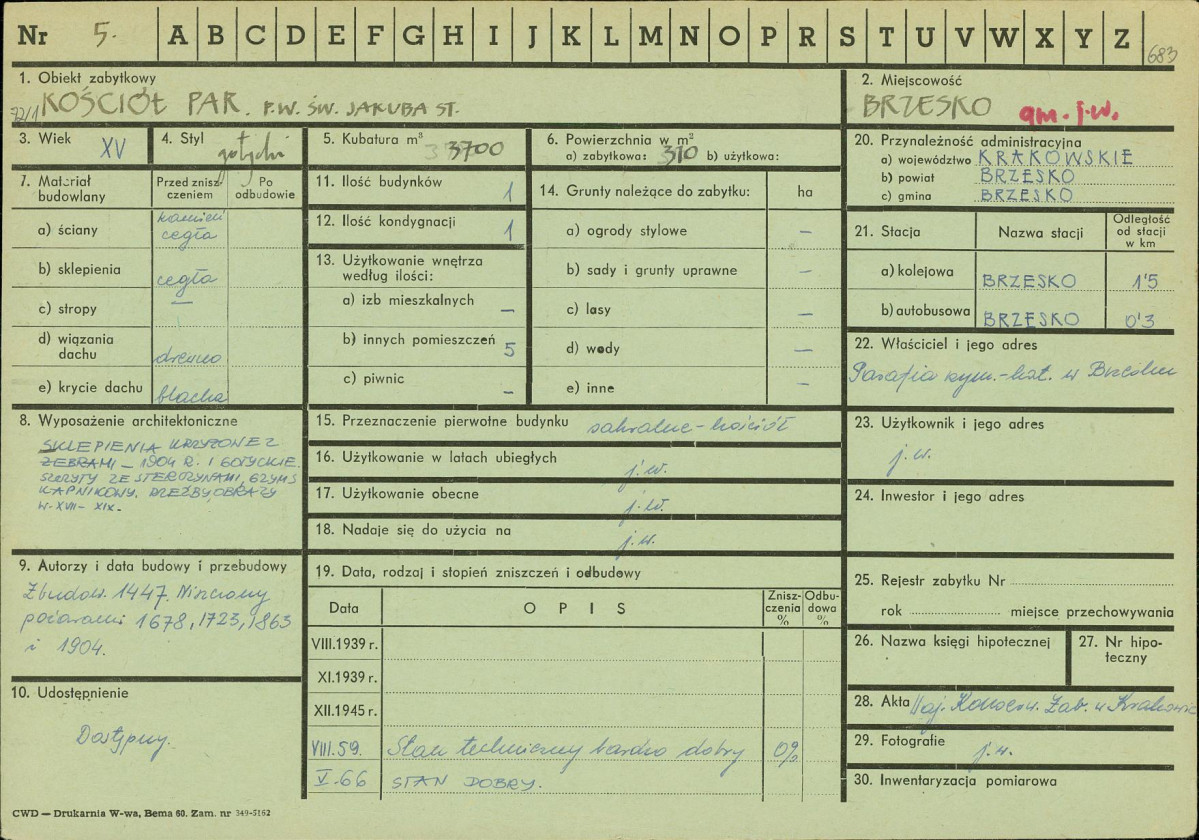 Nr 5. A B C D E F G H I J K L M N O P R S T U V W X Y Z 683
1. Obiekt zabytkowy
72/1 KOŚCIÓŁ PAR. P.W. ŚW. JAKUBA ST.
2. Miejscowość
BRZESKO gm. j.w.
3. Wiek XV
4. Styl gotycki
5. Kubatura m³ 3700
6. Powierzchnia w m²
a) zabytkowa: 310 b) użytkowa:
7. Materiał budowlany
Przed zniszczeniem
Po odbudowie
a) ściany kamień cegła
b) sklepienia cegła
c) stropy —
d) wiązania dachu drewno
e) krycie dachu blacha
8. Wyposażenie architektoniczne
SKLEPIENIA KRZYŻONE Z
ŻEBRAMI – 1904 R. I GOTYCKIE.
SZCZYTY ZE STERCZYNAMI, GZYMS
KAPNIKOWY. RZEŹBY OBRAZY
W. XVII – XIX.
9. Autorzy i data budowy i przebudowy
Zbudow. 1447. Niszczony
pożarami 1678, 1723, 1863
i 1904.
10. Udostępnienie
Dostępny.
11. Ilość budynków 1
12. Ilość kondygnacji 1
13. Użytkowanie wnętrza
według ilości:
a) izb mieszkalnych —
b) innych pomieszczeń 5
c) piwnic —
14. Grunty należące do zabytku: ha
a) ogrody stylowe —
b) sady i grunty uprawne —
c) lasy —
d) wody —
e) inne —
15. Przeznaczenie pierwotne budynku sakralne – kościół
16. Użytkowanie w latach ubiegłych j.w.
17. Użytkowanie obecne j.w.
18. Nadaje się do użycia na j.w.
19. Data, rodzaj i stopień zniszczeń i odbudowy
Data OPIS Zniszczenia % Odbudowa %
VIII.1939 r.
XI.1939 r.
XII.1945 r.
VIII.59. Stan techniczny bardzo dobry 0%
V.66 STAN DOBRY.
20. Przynależność administracyjna
a) województwo KRAKOWSKIE
b) powiat BRZESKO
c) gmina BRZESKO
21. Stacja Nazwa stacji Odległość od stacji w km
a) kolejowa BRZESKO 1'5
b) autobusowa BRZESKO 0'3
22. Właściciel i jego adres
Parafia rzym.-kat. w Brzesku
23. Użytkownik i jego adres
j.w.
24. Inwestor i jego adres
25. Rejestr zabytku Nr
rok miejsce przechowywania
26. Nazwa księgi hipotecznej
27. Nr hipoteczny
28. Akta Woj. Konserw. Zab. w Krakowie
29. Fotografie j.w.
30. Inwentaryzacja pomiarowa
CWD — Drukarnia W-wa, Bema 60. Zam. nr 349-5162